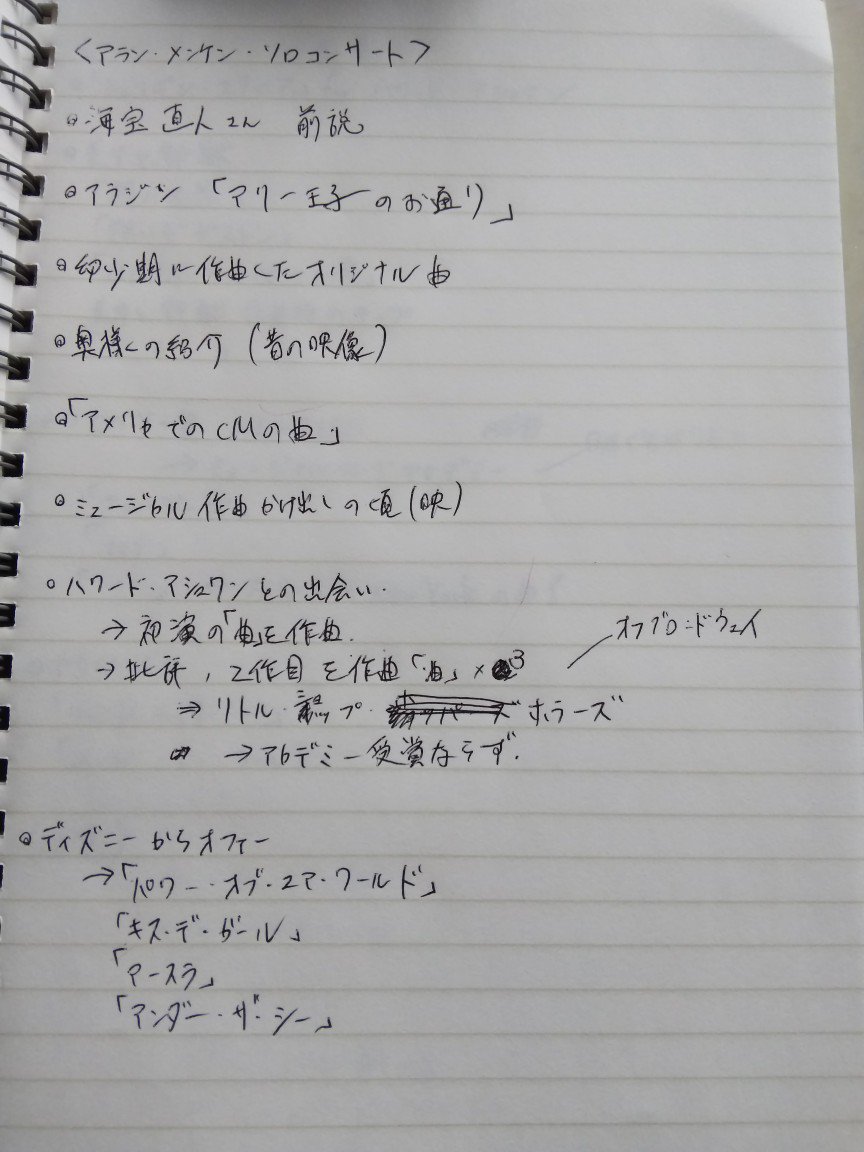 〈アラン・メンケン・ソロコンサート〉
◎海宝直人さん 前説
◎アラジン「アリー王子のお通り」
◎幼少期に作曲したオリジナル曲
◎奥様の紹介(昔の映像)
◎「アメリカでのCMの曲」
◎ミュージカル作曲かけ出しの頃(映)
○ハワード・アシュマンとの出会い.
→初演の「曲」を作曲.
オフブロードウェイ
→批評,2作目を作曲「曲」×3
⇒リトル・ショップ・ホラーズ
→アカデミー受賞ならず.
◎ディズニーからオファー
→「パワー・オブ・ユア・ワールド」
「キス・デ・ガール」
「アースラ」
「アンダー・ザ・シー」